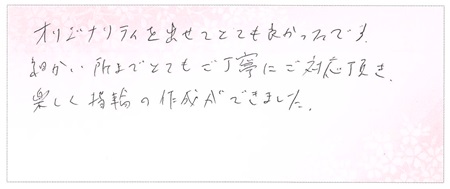 オリジナリティを出せてとても良かったです。
細かい所までとてもご丁寧にご対応頂き、
楽しく指輪の作成ができました。